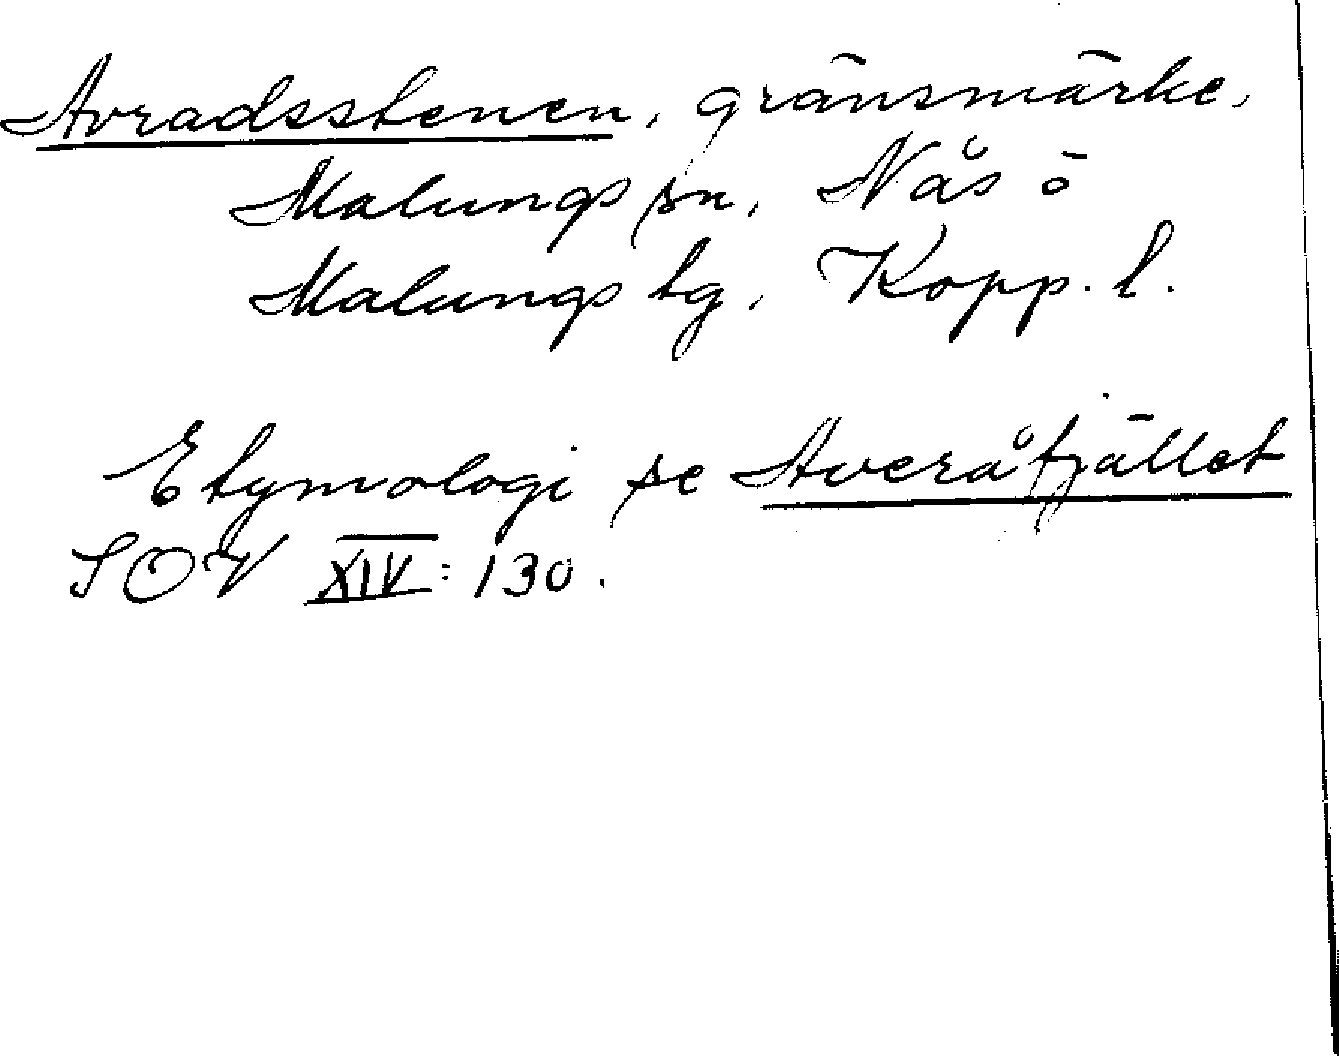 Avradsstenen, gränsmärke,
Malungs sn, Nås o
Malungs tg, Kopp. l.
Etymologi se Averåfjället
SOV XIV: 130.